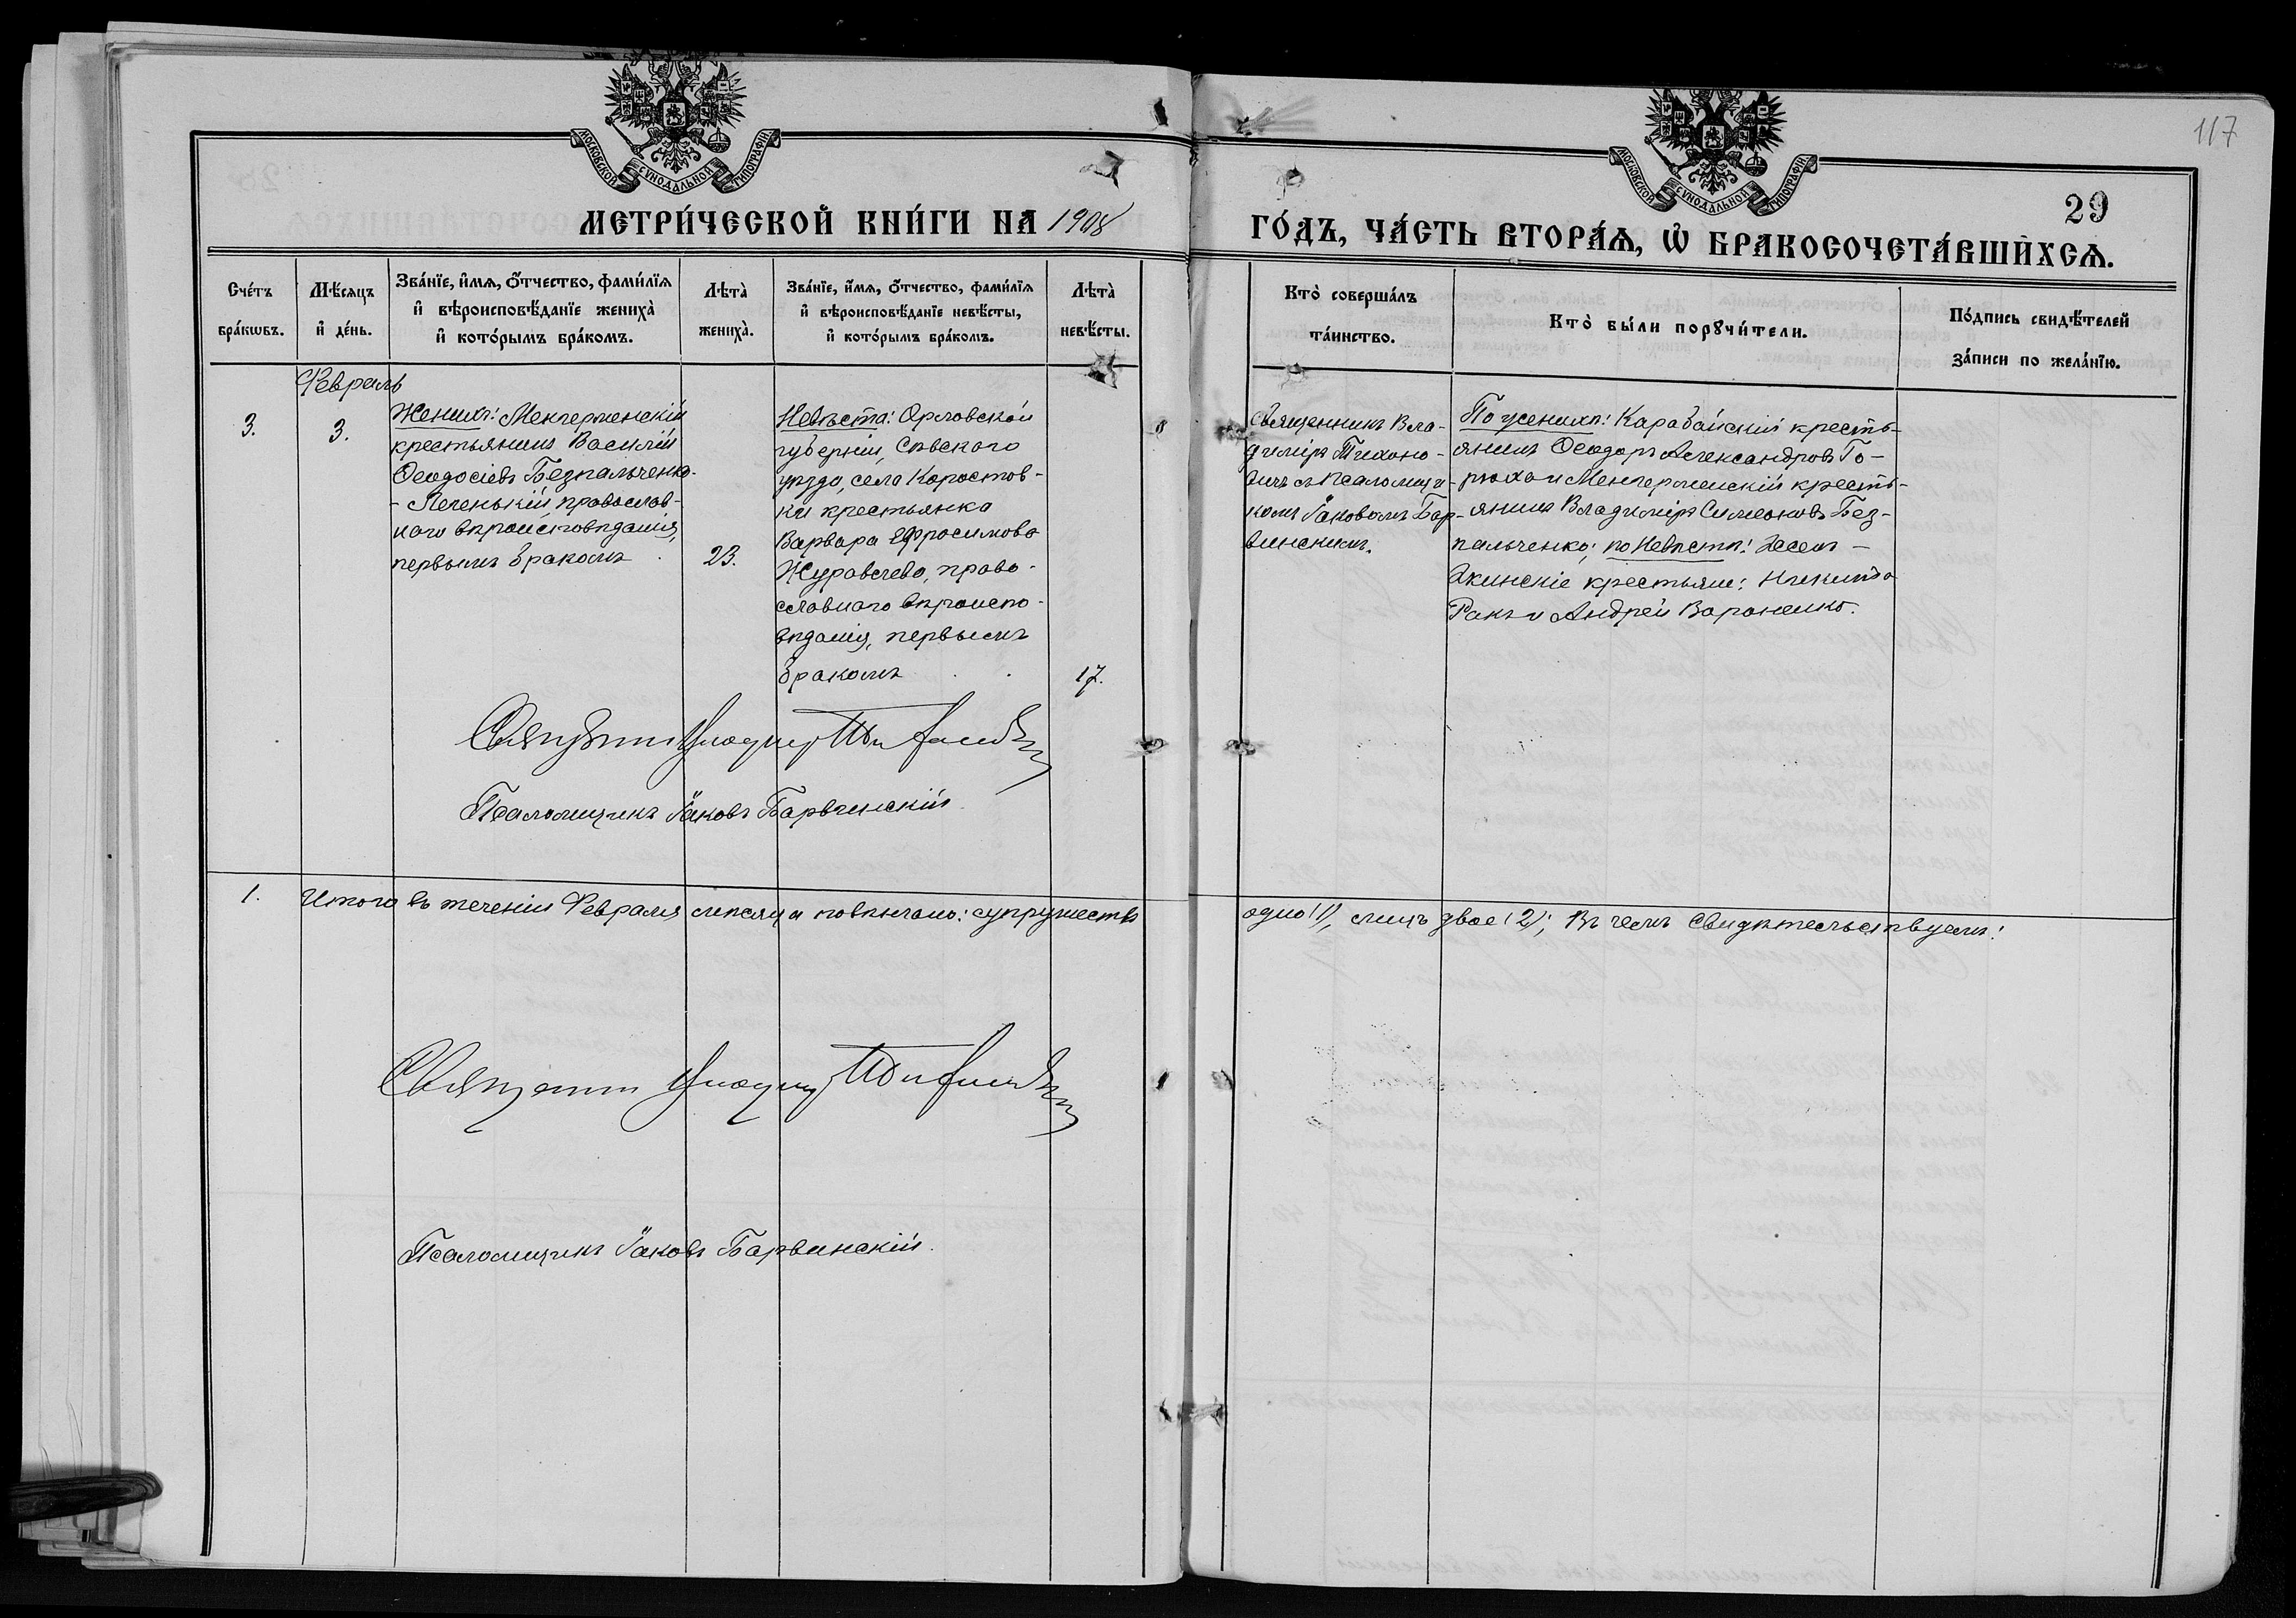 117
МОСКОВСКОЙ СУНОДАЛЬНОЙ ТИПОГРАФІИ
МОСКОВСКОЙ СУНОДАЛЬНОЙ ТИПОГРАФІИ
29
МЕТРИ́ЧЕСКОЙ КНИ́ГИ НА 1908
ГО́ДЪ, ЧА́СТЬ ВТОРА́Ѧ, Ѡ БРАКОСОЧЕТА́ВШИХСѦ.
Сче́тъ бра́кѡвъ.
Мѣ́сяцъ и де́нь.
Зва́нїе, и́мѧ, ѻ́тчество, фами́лїѧ
и вѣроисповѣ́данїе жениха̀
и кото́рымъ бра́комъ.
Лѣта̀ жениха̀.
Зва́нїе, и́мѧ, ѻ́тчество, фами́лїѧ
и вѣроисповѣ́данїе невѣ́сты,
и кото́рымъ бра́комъ.
Лѣта̀ невѣ́сты.
Кто̀ соверша́лъ
та́инство.
Кто̀ бы́ли порꙋчи́тели.
По́дпись свидѣ́телей
за́писи по жела́нїю.
Февраль
3.
3.
Женихъ: Менчерменскій
крестьянинъ Василій
Ѳеодосіевъ Безпальченко-
- Легенькій, православ-
наго вѣроисповѣданія,
первымъ бракомъ
23.
Невѣста: Орловской
губерніи, Сѣвскаго
уѣзда, села Коростов-
ки крестьянка
Варвара Ефросимова
Журавлева, право-
славнаго вѣроиспо-
вѣданія, первымъ
бракомъ
17.
Священникъ Вла-
диміръ Тихоно-
вичъ съ псаломщи-
комъ Іаковомъ Бар-
винскимъ.
По женихѣ: Карабайскій кресть-
янинъ Ѳеодоръ Александровъ Го-
рюха и Менчерменскій кресть-
янинъ Владиміръ Симеоновъ Без-
пальченко; по невѣстѣ: Жсем-
кинскіе крестьяне: Никита
Ракъ и Андрей Вороненко.
Священникъ Владиміръ Тихоновичъ
Псаломщикъ Іаковъ Барвинскій
1. Итого въ теченіи Февраля мѣсяца повѣнчано: супружество
одно (1), лицъ двое (2); Въ чемъ свидѣтельствуемъ:
Священникъ Владиміръ Тихоновичъ
Псаломщикъ Іаковъ Барвинскій.